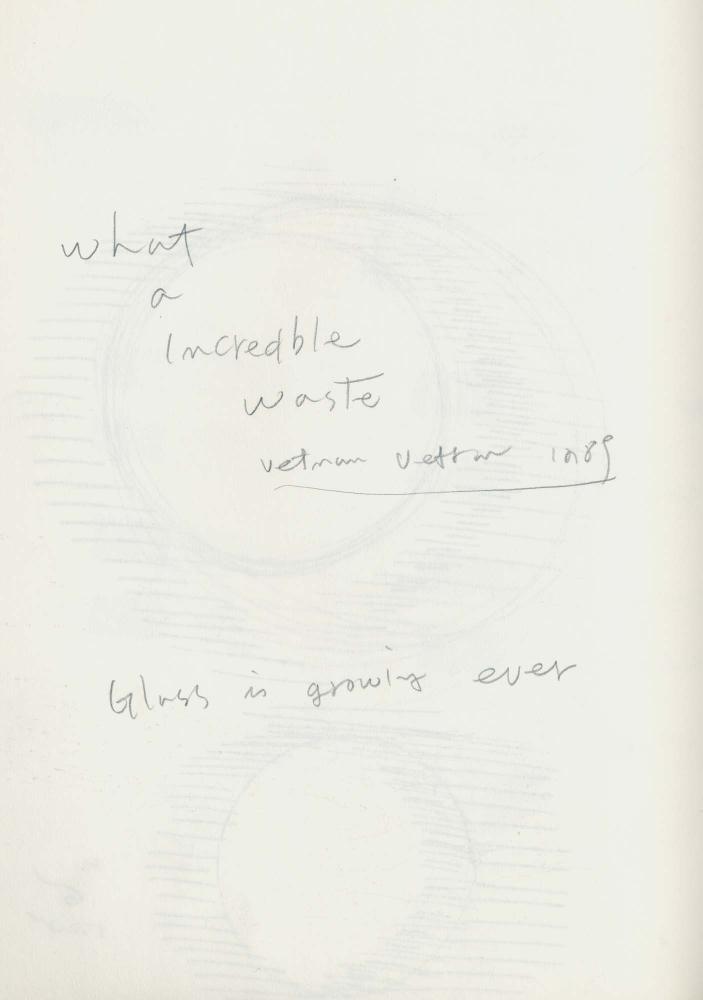 what
a
incredble
waste
vetnam
Glass is growing ever